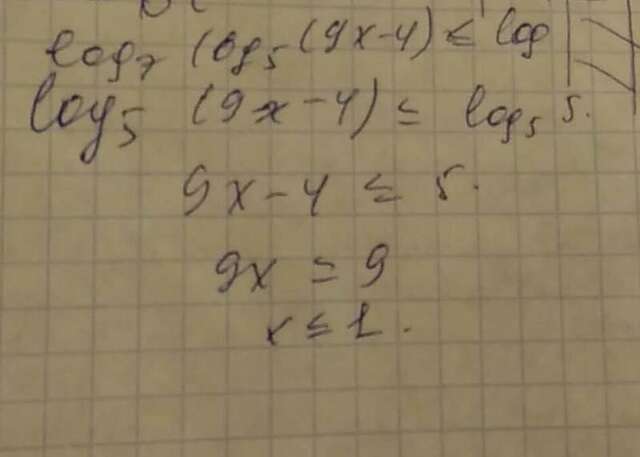 log₇ log₅ (9x-4) ≤ log
log₅ (9x-4) ≤ log₅ 5.
9x-4 ≤ 5.
9x ≤ 9
x ≤ 1.